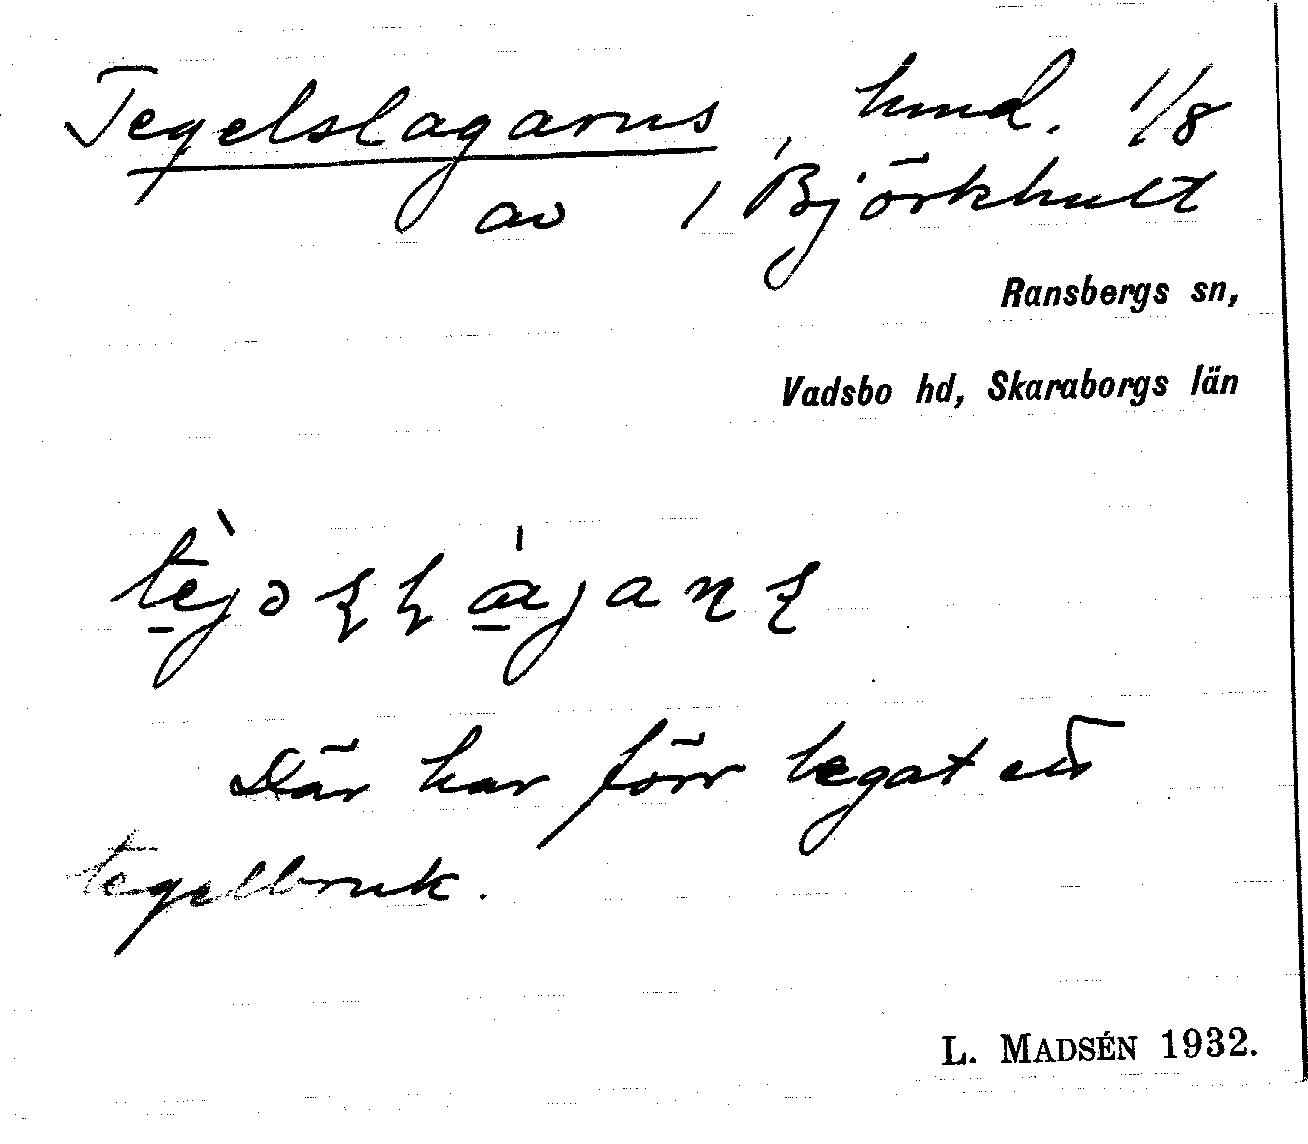 Tegelslagarns, hmd. 1/8
av 1 Björkhult
Ransbergs sn,
Vadsbo hd, Skaraborgs län
Där har förr legat ett
tegelbruk.
L. MADSÉN 1932.